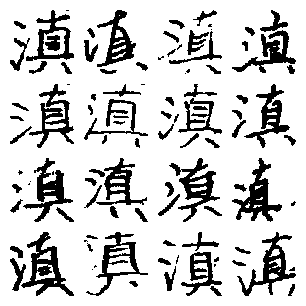 滇滇滇滇
滇滇滇滇
滇滇滇滇
滇滇滇滇